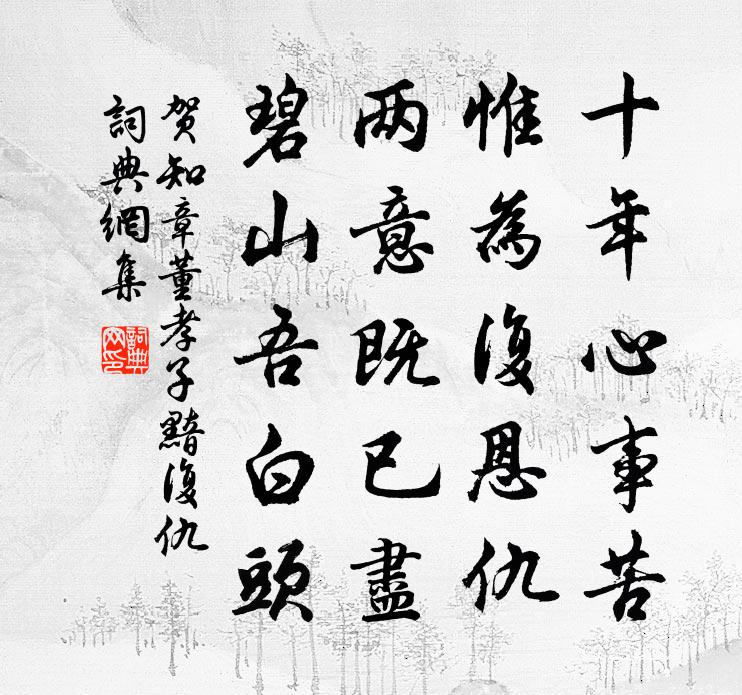 十年心事苦
惟為復恩仇
两意既已盡
碧山吾白頭
賀知章董孝子黯復仇
詞典網集
詞典網印